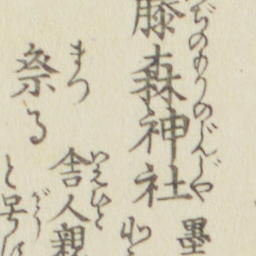 ぢのもりのじんじや
藤森神社
墨
まつ
祭る
いへひと
舎人親
がう
と号